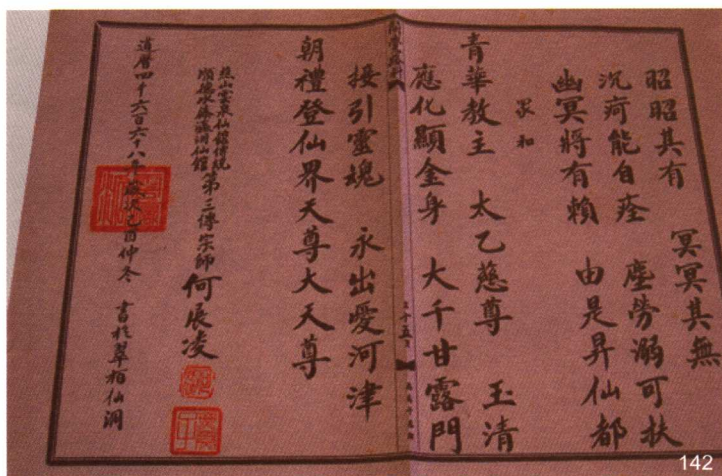 昭昭其有 冥冥其無
沉疴能自痊 塵勞溺可扶
幽冥將有賴 由是昇仙都
眾和
青華教主 太乙慈尊 玉清
應化顯金身 大千甘露門
接引靈魂 永出愛河津
朝禮登仙界天尊大天尊
順德水藤 仙館第三傳宗師何展凌
道曆四千六百六十八年歲次乙酉仲冬 書於翠栢仙洞
142